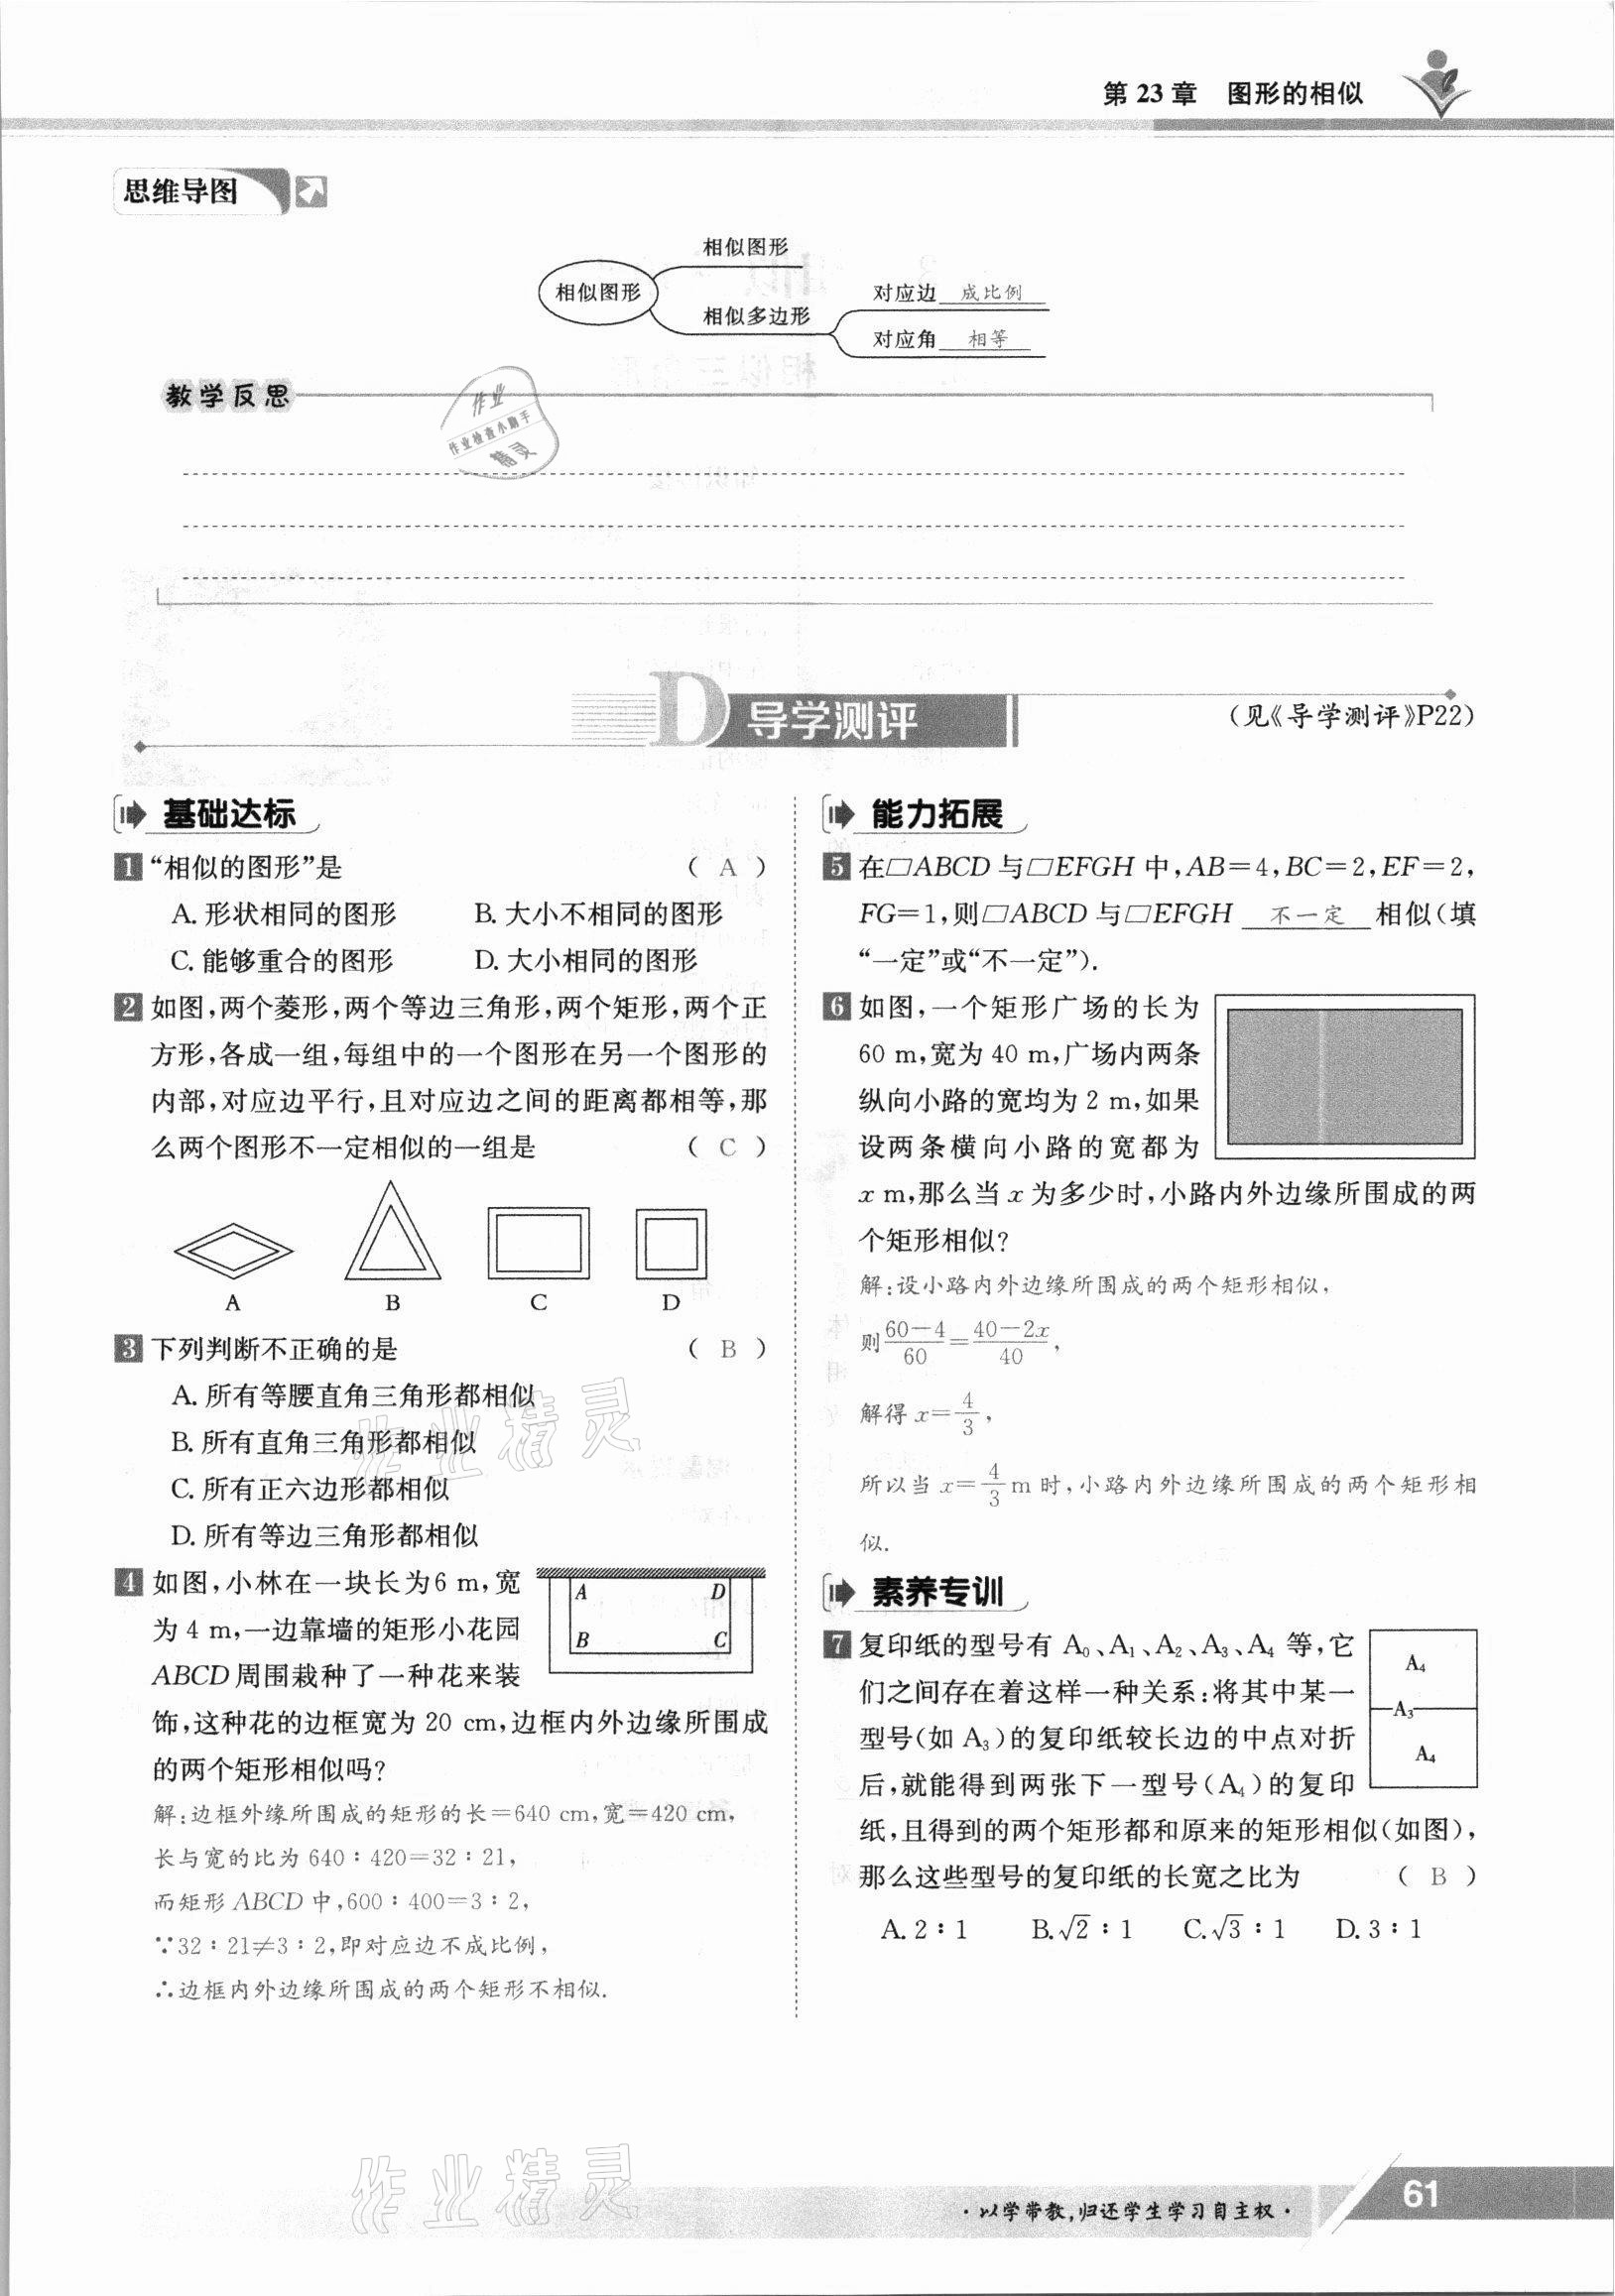 第 23 章 图形的相似
思维导图
相似图形
相似图形
相似多边形
对应边 成比例
对应角 相等
教学反思
作业
作业检查小助手
精灵
D 导学测评
(见《导学测评》P22)
基础达标
1 “相似的图形”是 ( A )
A. 形状相同的图形 B. 大小不相同的图形
C. 能够重合的图形 D. 大小相同的图形
2 如图,两个菱形,两个等边三角形,两个矩形,两个正
方形,各成一组,每组中的一个图形在另一个图形的
内部,对应边平行,且对应边之间的距离都相等,那
么两个图形不一定相似的一组是 ( C )
A B C D
3 下列判断不正确的是 ( B )
A. 所有等腰直角三角形都相似
B. 所有直角三角形都相似
C. 所有正六边形都相似
D. 所有等边三角形都相似
4 如图,小林在一块长为6 m,宽
为 4 m,一边靠墙的矩形小花园
ABCD周围栽种了一种花来装
饰,这种花的边框宽为 20 cm,边框内外边缘所围成
的两个矩形相似吗?
A D
B C
解:边框外缘所围成的矩形的长=640 cm,宽=420 cm,
长与宽的比为 640∶420=32∶21,
而矩形 ABCD 中,600∶400=3∶2,
∵32∶21≠3∶2,即对应边不成比例,
∴边框内外边缘所围成的两个矩形不相似.
能力拓展
5 在▱ABCD 与▱EFGH 中,AB=4,BC=2,EF=2,
FG=1,则▱ABCD 与▱EFGH 不一定 相似(填
“一定”或“不一定”).
6 如图,一个矩形广场的长为
60 m,宽为 40 m,广场内两条
纵向小路的宽均为 2 m,如果
设两条横向小路的宽都为
x m,那么当 x 为多少时,小路内外边缘所围成的两
个矩形相似?
解:设小路内外边缘所围成的两个矩形相似,
则 60-4/60 = 40-2x/40,
解得 x=4/3,
所以当 x=4/3 m 时,小路内外边缘所围成的两个矩形相
似.
素养专训
7 复印纸的型号有 A₀、A₁、A₂、A₃、A₄ 等,它
们之间存在着这样一种关系:将其中某一
型号(如 A₃)的复印纸较长边的中点对折
后,就能得到两张下一型号(A₄)的复印
纸,且得到的两个矩形都和原来的矩形相似(如图),
那么这些型号的复印纸的长宽之比为 ( B )
A₄
A₃
A₄
A. 2∶1 B. √2∶1 C. √3∶1 D. 3∶1
作业精灵
作业精灵
·以学带教,归还学生学习自主权·
61